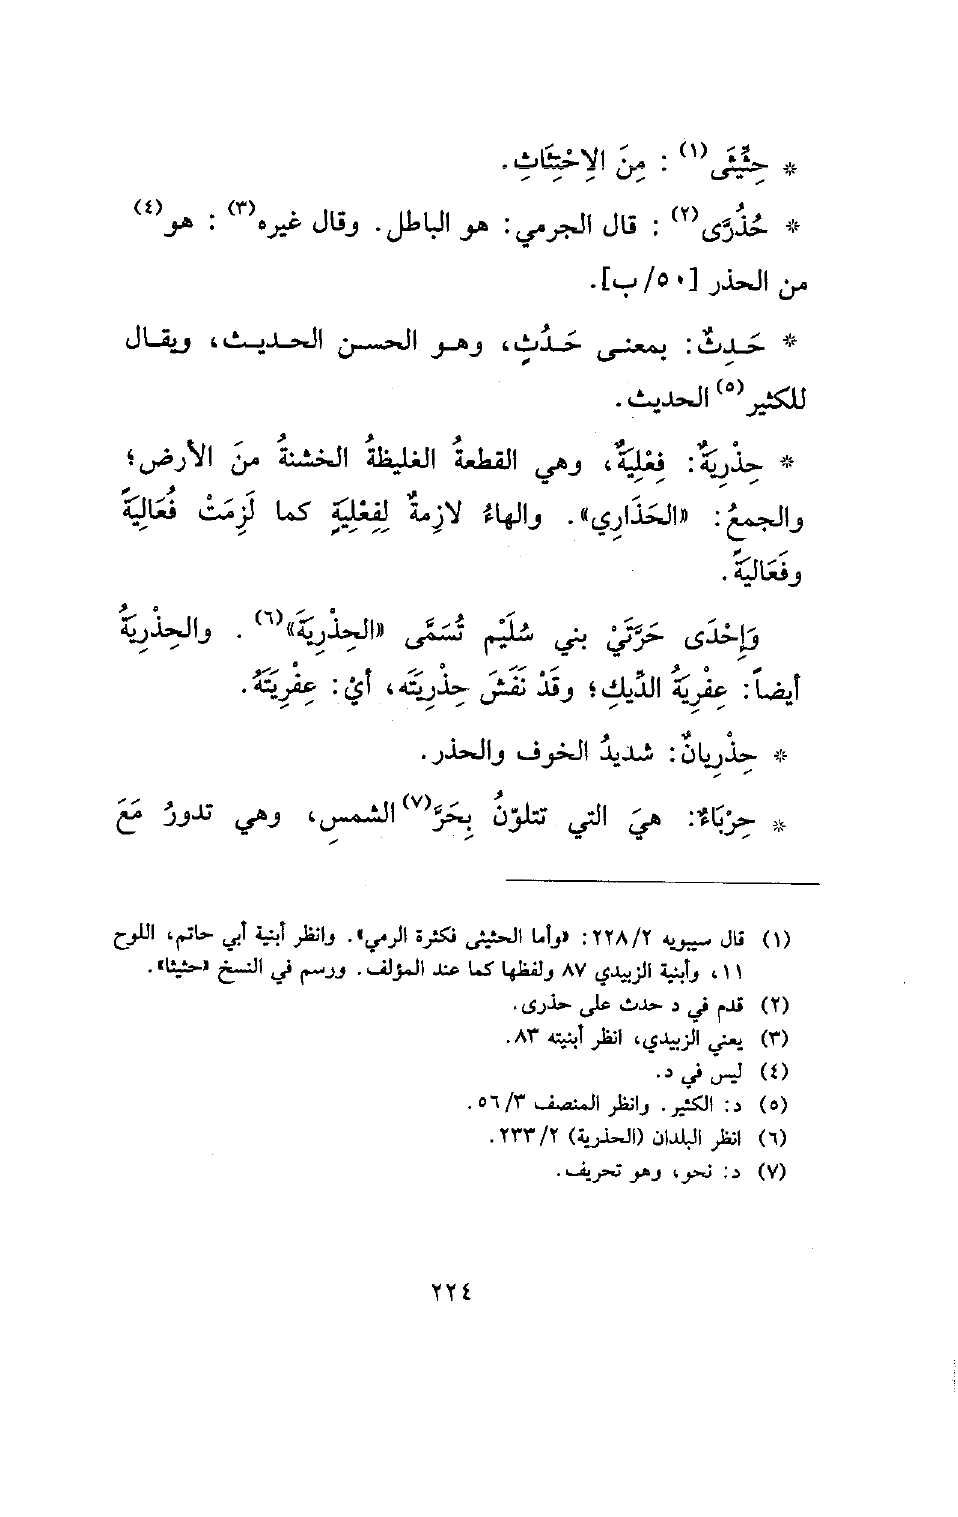 * حِثِّيثَى(١) : مِنَ الاِحْتِثَاثِ.
* حُذُرَّى(٢) : قال الجرمي: هو الباطل. وقال غيره(٣) : هو(٤)
من الحذر [٥٠/ب].
* حَدِثٌ: بمعنى حَدُثٍ، وهو الحسن الحديث، ويقال
للكثير(٥) الحديث.
* حِذْرِيَةٌ: فِعْلِيَةٌ، وهي القطعةُ الغليظةُ الخشنةُ منَ الأرض؛
والجمعُ: «الحَذَارِي». والهاءُ لازِمةٌ لِفِعْلِيَةٍ كما لَزِمَتْ فُعَالِيَةً
وفَعَاليَةً.
وَإِحْدَى حَرَّتَيْ بني سُلَيْم تُسَمَّى «الحِذْرِيَةَ»(٦) . والحِذْرِيَةُ
أيضاً: عِفْرِيَةُ الدِّيكِ؛ وقَدْ نَفَشَ حِذْرِيَتَه، أيْ: عِفْرِيَتَهُ.
* حِذْرِيانٌ: شديدُ الخوف والحذر.
* حِرْبَاءٌ: هيَ التي تتلوّنُ بِحَرَّ(٧) الشمسِ، وهي تدورُ مَعَ
(١) قال سيبويه ٢/ ٢٢٨: «وأما الحثيثى فكثرة الرمي». وانظر أبنية أبي حاتم، اللوح
١١، وأبنية الزبيدي ٨٧ ولفظها كما عند المؤلف. ورسم في النسخ «حثيثا».
(٢) قدم في د حدث على حذرى.
(٣) يعني الزبيدي، انظر أبنيته ٨٣.
(٤) ليس في د.
(٥) د: الكثير. وانظر المنصف ٣/ ٥٦.
(٦) انظر البلدان (الحذرية) ٢/ ٢٣٣.
(٧) د: نحو، وهو تحريف.
٢٢٤